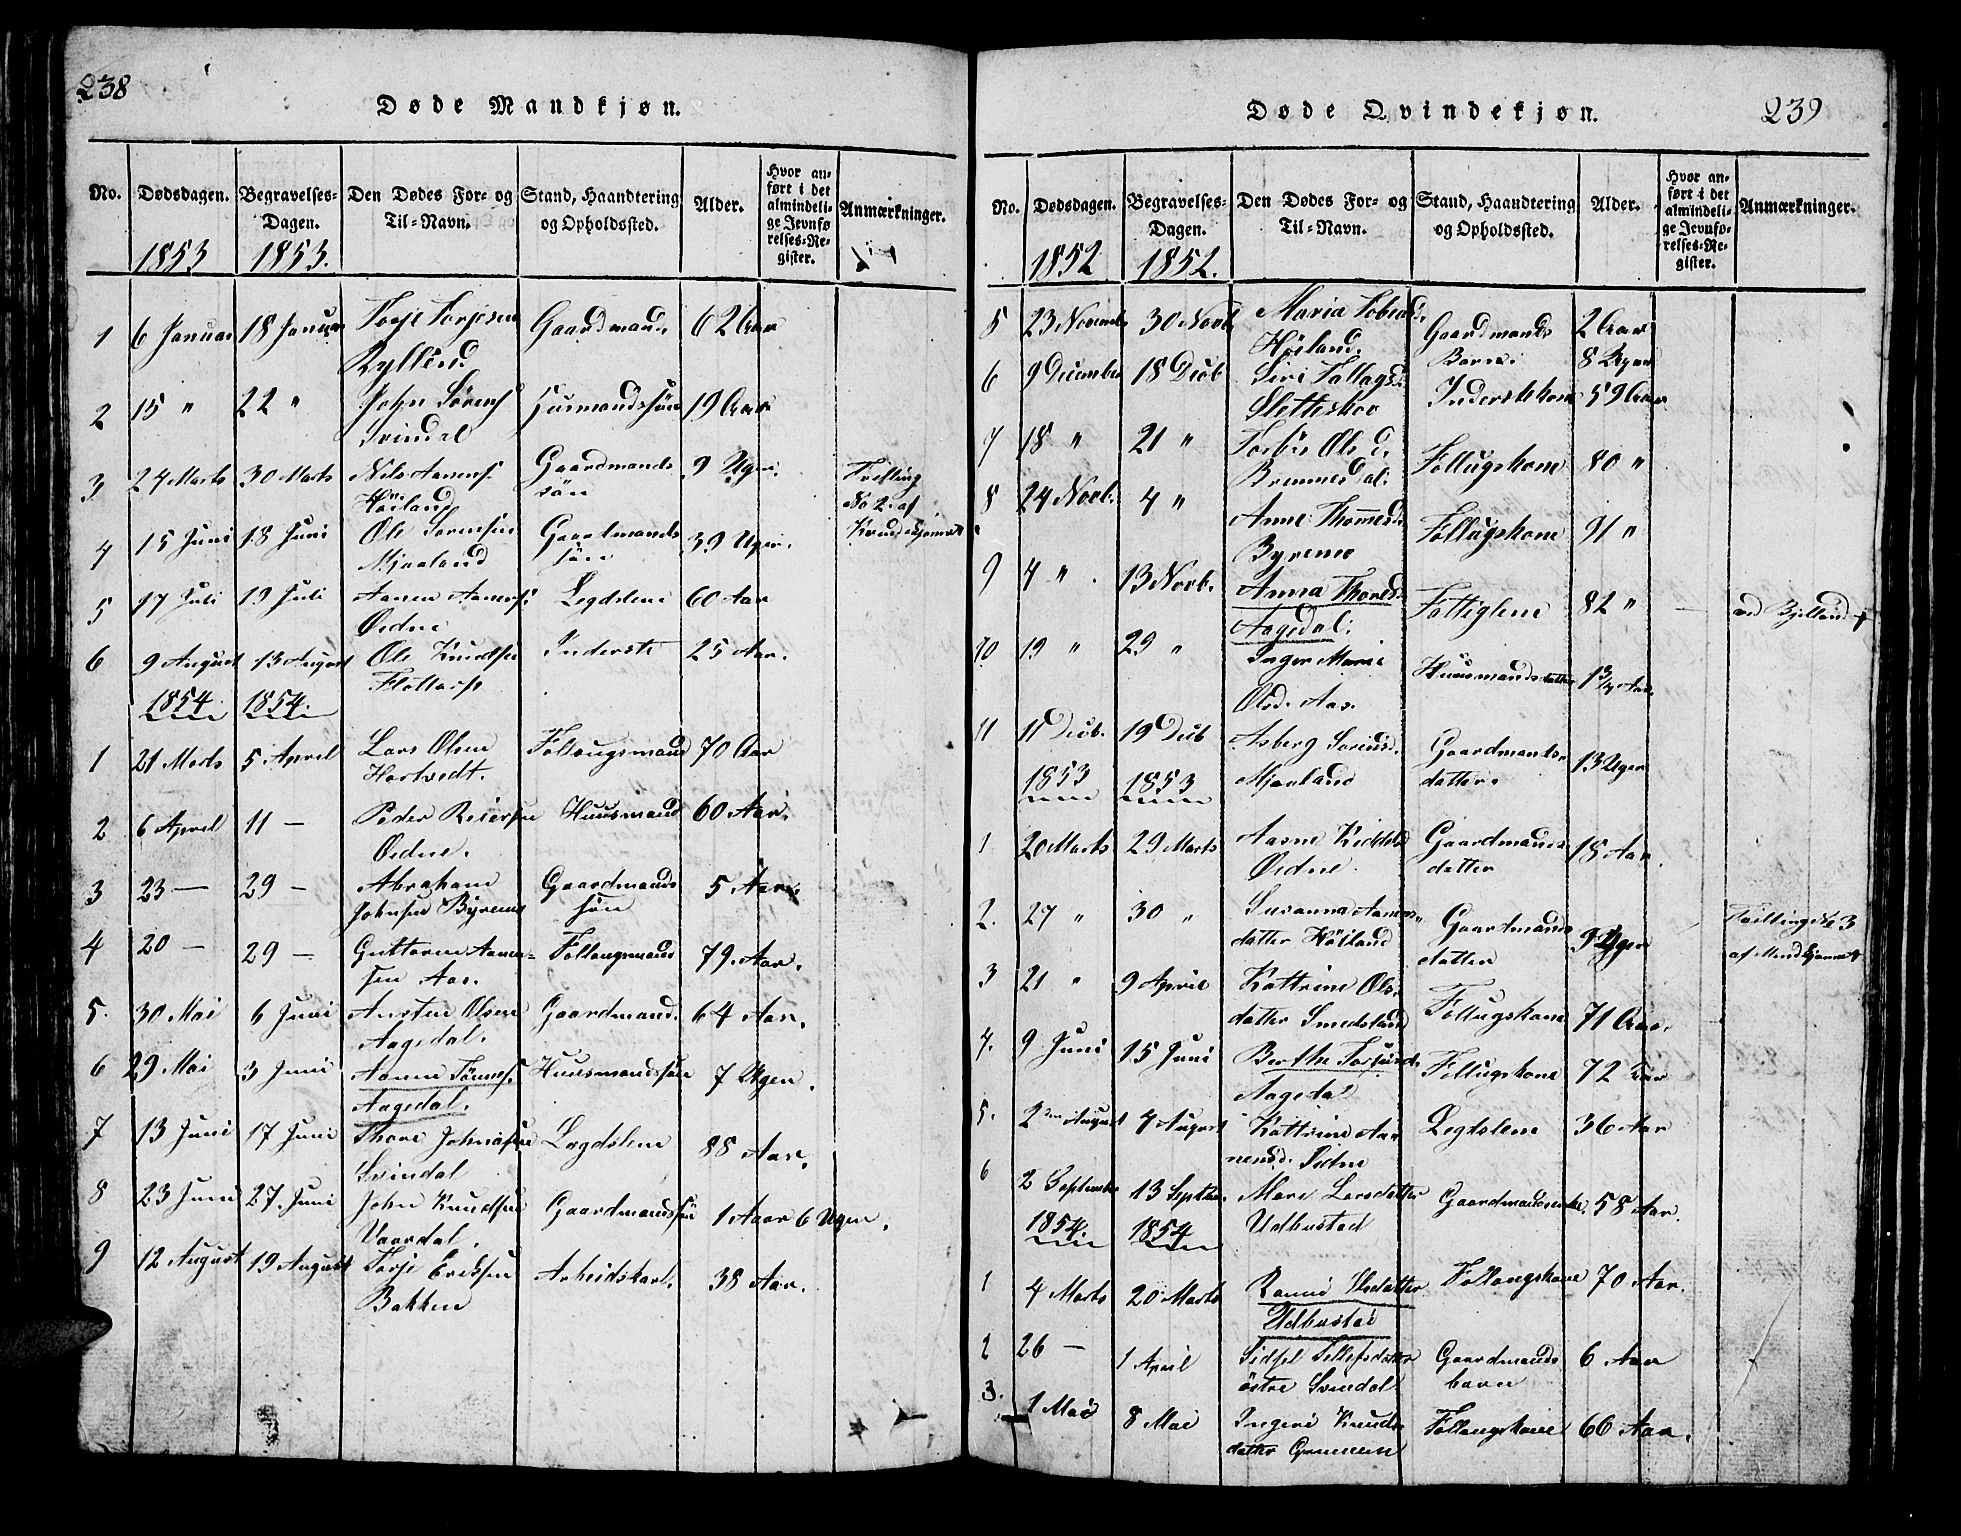 238
Døde Mandkjøn.
No. Dødsdagen. Begravelses-Dagen. Den Dødes For- og Til-Navn. Stand, Haandtering og Opholdssted. Alder. Hvor anført i det almindelige Jevnførelses-Register. Anmærkninger.
1853 1853.
1 6 Januar 18 Januar Torje Torjesen Gaardmand. 62 Aar
Kylland
2 15 " 22 " John Sørens. Huusmandssøn 19 Aar
Svindal
3 24 Marts 30 Marts Nils Aanens. Gaardmands 9 Uger. Tvilling
Høiland søn No 2 af
Kvindekjønnet
4 15 Juni 18 Juni Ole Sørensen Gaardmands 39 Uger.
Mjaaland søn
5 17 Juli 19 Juli Aanen Aanens. Legdslem 60 Aar
Øidne
6 9 August 13 August Ole Knudsen Inderste 25 Aar.
1854 1854
1 21 Marts 5 April Lars Olsen Føllougsmand 70 Aar
Hortvedt.
2 6 April 11 — Peder Reiersen Huusmand 60 Aar.
Øidne.
3 23 — 29 — Abraham Gaardmands 5 Aar
Johnsen Byremo søn
4 20 — 29 — Guttorm Aanen- Føllougsmand 79. Aar.
sen Aas.
5. 30 Mai 6 Juni Austen Olsen Gaardmand. 64 Aar.
Aagedal.
6 29 Mai 3 Juni Aanen Tønnes. Huusmandssøn 7 Uger.
Aagedal.
7 13 Juni 17 Juni Thore Johnsen Lægdslem 88 Aar.
Svindal
8 23 Juni 27. Juni John Knudsen Gaardmandssøn 1 Aar 6 Uger.
Vaardal.
9 12 August 19 August Torje Eriksen Arbeidskarl. 38 Aar.
Bakken
239
Døde Qvindekjøn.
No. Dødsdagen. Begravelses-Dagen. Den Dødes For- og Til-Navn. Stand, Haandtering og Opholdssted. Alder. Hvor anført i det almindelige Jevnførelses-Register. Anmærkninger.
1852 1852.
5 23 Novemb. 30 Novb. Maria Tobiasd. Gaardmands 2 Aar
Høiland. Barn. 8
6 9 December 18 Decb Siri Tallagsd. Inderstekone 59 Aar
Sletteskov
7 18 " 21 " Torbør Olsd. Føllugskone 80 "
8 24 Novb. 4 " Anne Thomesd. Føllugskone 91 "
Byremo
9 4 " 13 Novb. Anna Thoresd. Fattiglem 82 " — ved Bjelland
Aagedal.
10 19 " 29 " Inger Marie Huusmandsdatter Aar
Olsd. Aas.
11 11 Decb. 19 Decb Asberg Sørensd. Gaardmands- 13 Uger
Mjaaland datter.
1853 1853
1 20 Marts 29 Marts Aasne Kittelsd Gaardmands 18 Aar.
Øidne. datter
2. 27 " 30 " Susanna Aanens- Gaardmands 9 Uger Tvilling No 3
datter Høiland datter af Mandkjønnet
3 21 " 9 April Kattrine Ols. Føllugskone 71 Aar.
datter Smedsland
4. 9 Juni 15 Juni Berthe Føllugskone 72 Aar
Aagedal
5. 2den August 7 August Kattrine Aa- Legdslem 36 Aar
nensd. Øidne
6 2 September 13 Septbr. Mari Larsdatter Gaardmandsenke. 58 Aar.
1854 1854 Udbustad
1 4 Marts 20 Marts Ranni Føllougskone 70 Aar.
Udbustad
2 26 — 1 April Sidsel Tellefsdatter Gaardmands 6 Aar
østre Svindal barn
3. 1 Mai 8 Mai Ingeri Knuds Føllougskone 66 Aar.
datter